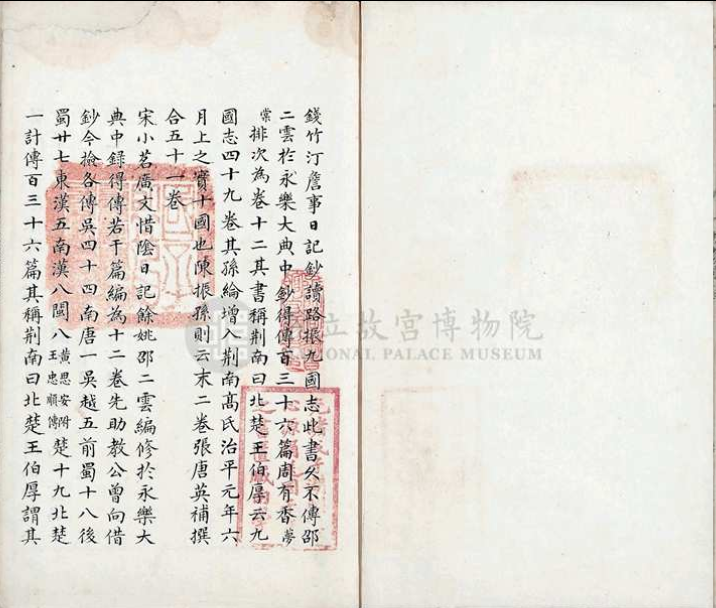 錢竹汀詹事日記鈔讀路振九國志此書久不傳邵
二雲於永樂大典中鈔得傳百三十六篇周有香夢
棠排次為卷十二其書稱荆南曰北楚王伯厚云九
國志四十九卷其孫綸增入荆南高氏治平元年六
月上之實十國也陳振孫則云末二卷張唐英補撰
合五十一卷
宋小茗廣文惜陰日記餘姚邵二雲編修於永樂大
典中録得傳若干篇編為十二卷先助教公曾向借
鈔今撿各傳吳四十四南唐一吳越五前蜀十八後
蜀廿七東漢五南漢八閩八黄思安附王忠順傳楚十九北楚
一計傳百三十六篇其稱荆南曰北楚王伯厚謂其
國立故宮博物院
NATIONAL PALACE MUSEUM